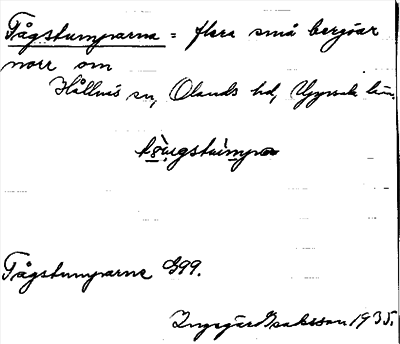 Tågstumparna = flera små bergöar
norr om
Hållnäs sn, Olands hd, Uppsala län.
Tågstumparna G99.
Ingegärd Isaksson 1935.